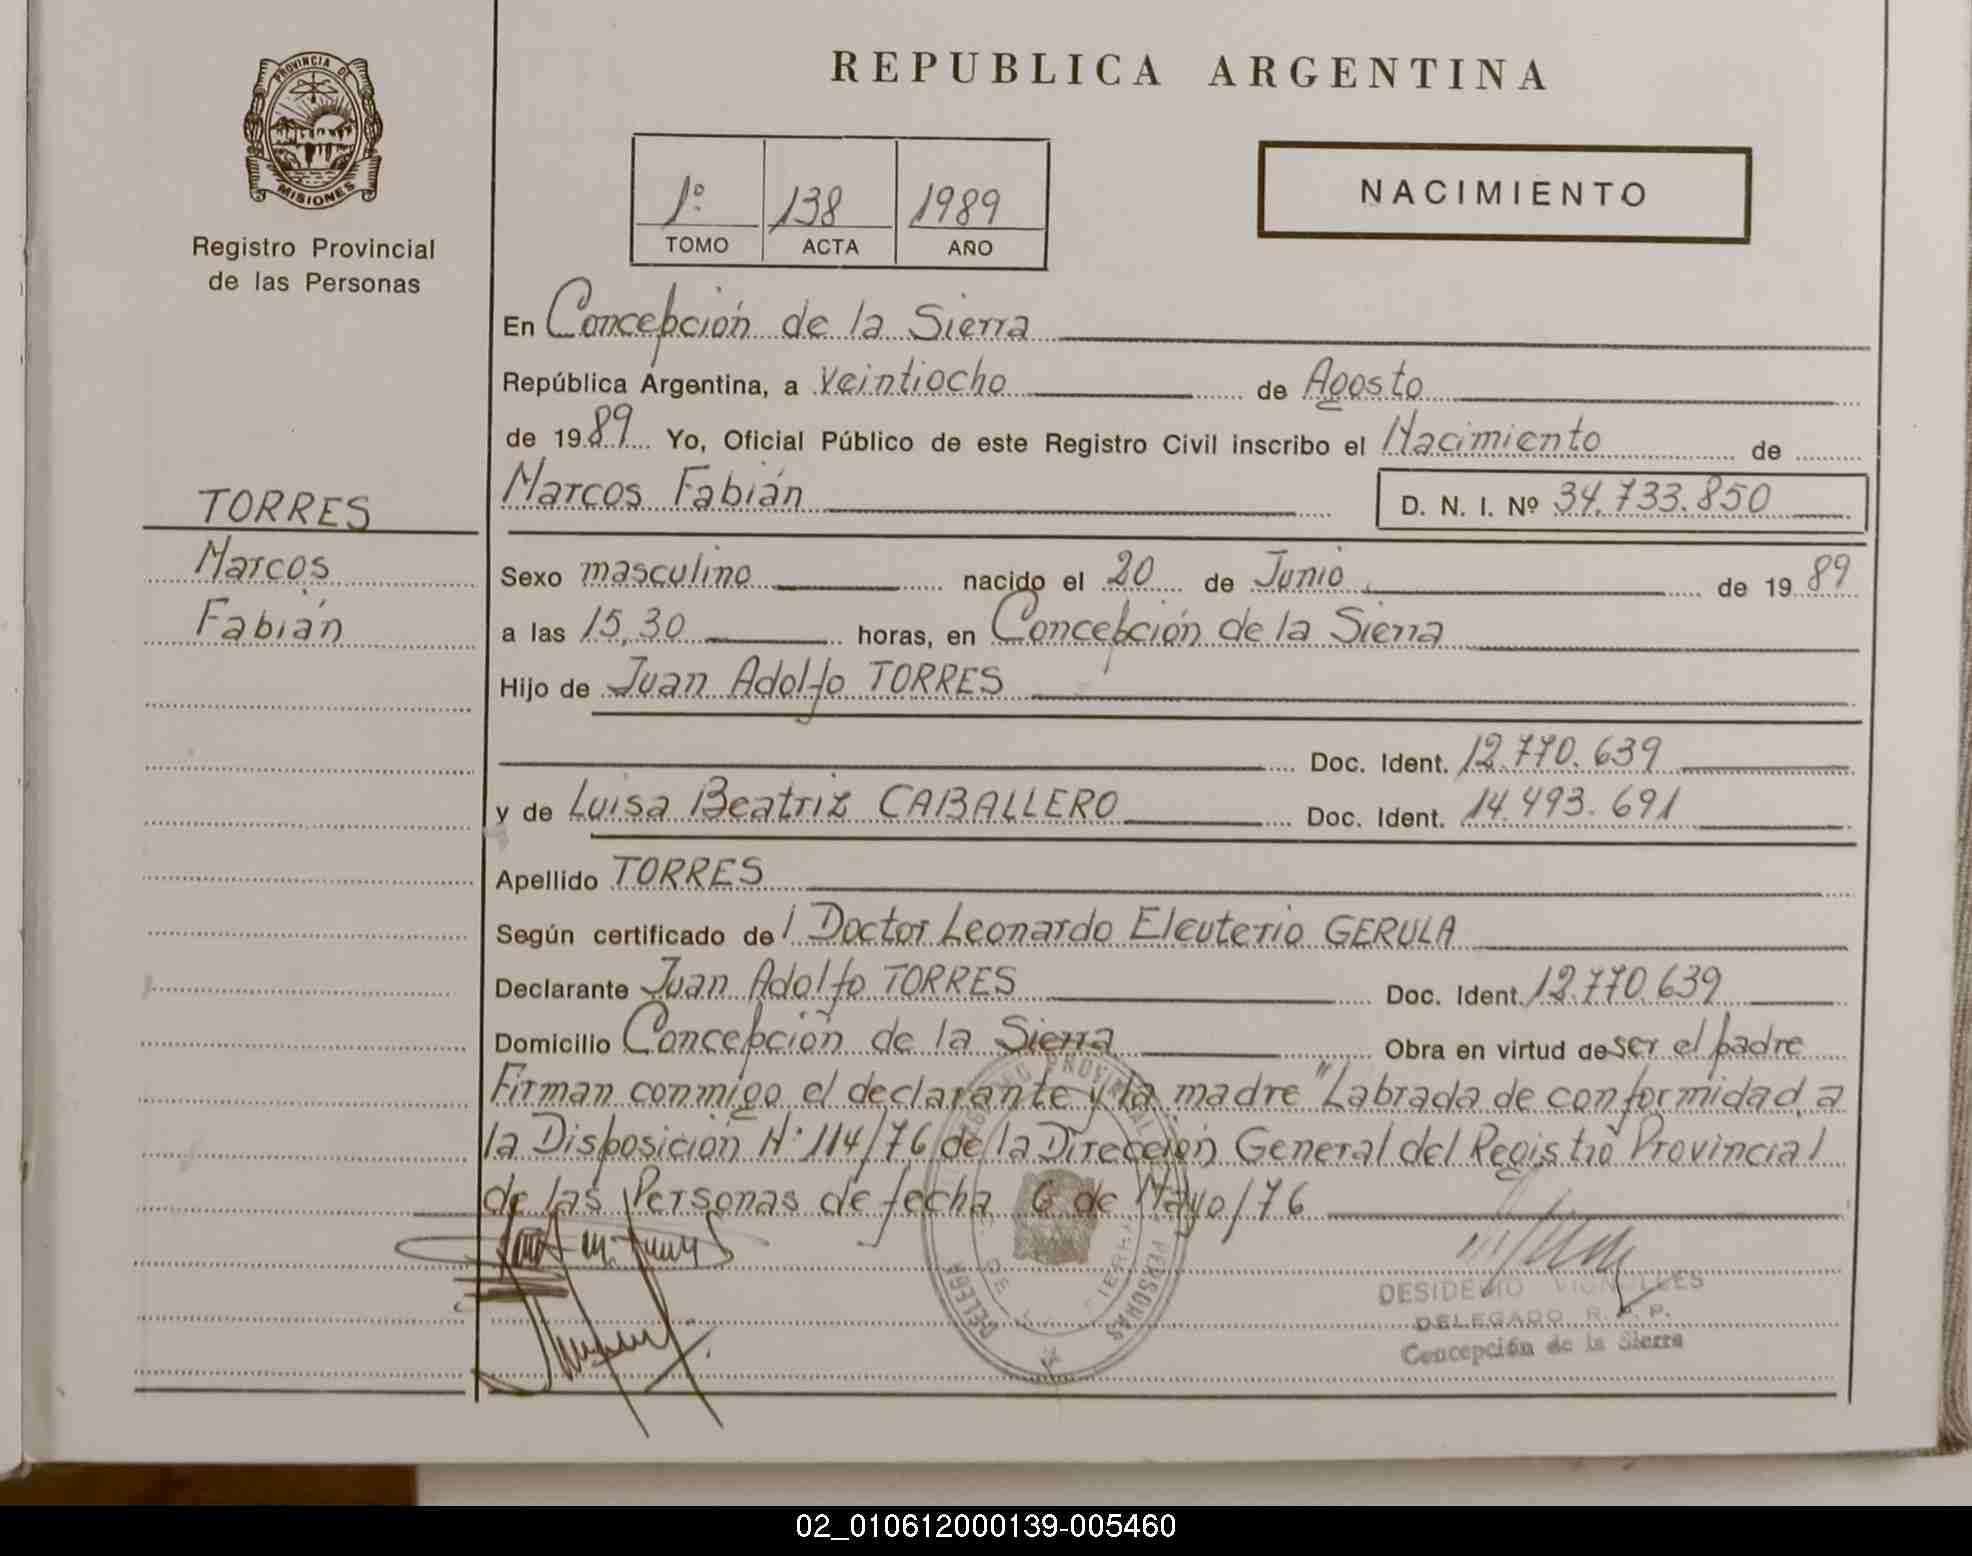 PROVINCIA DE
MISIONES
Registro Provincial
de las Personas
TORRES
Marcos
Fabián
REPUBLICA ARGENTINA
1º 138 1989
TOMO ACTA AÑO
NACIMIENTO
En Concepción de la Sierra
República Argentina, a veintiocho de Agosto
de 1989 Yo, Oficial Público de este Registro Civil inscribo el Nacimiento de
Marcos Fabián D. N. I. Nº 34.733.850
Sexo masculino nacido el 20 de Junio de 1989
a las 15,30 horas, en Concepción de la Sierra
Hijo de Juan Adolfo TORRES
Doc. Ident. 12.770.639
y de Luisa Beatriz CABALLERO Doc. Ident. 14.493.691
Apellido TORRES
Según certificado del Doctor Leonardo Eleuterio GERULA
Declarante Juan Adolfo TORRES Doc. Ident. 12.770.639
Domicilio Concepción de la Sierra Obra en virtud de ser el padre
Firman conmigo el declarante y la madre "Labrada de conformidad a
la Disposición N: 114/76 de la Dirección General del Registro Provincial
de las Personas de fecha 6 de Mayo/76
DESIDERIO VIGNOLLES
DELEGADO R. P. P.
Concepción de la Sierra
02_010612000139-005460